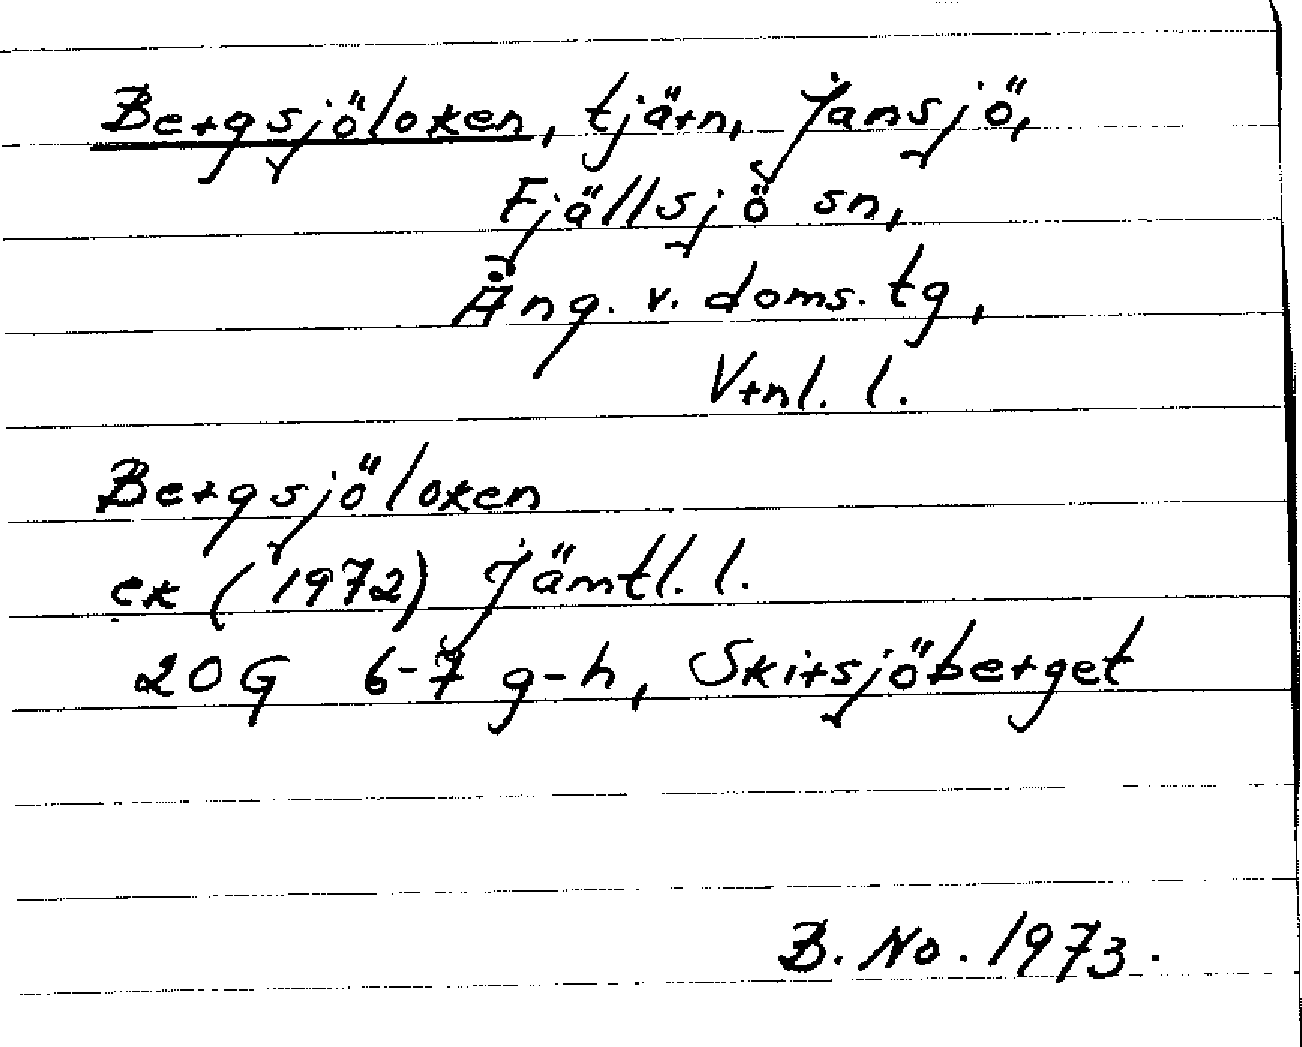 Bergsjöloken, tjärn, Jansjö,
Fjällsjö sn,
Äng. v. doms. tg,
Vrnl. l.
Bergsjöloken
ek (1972) Jämtl. l.
20G 6-7 g-h, Skirsjöberget
B. No. 1973.